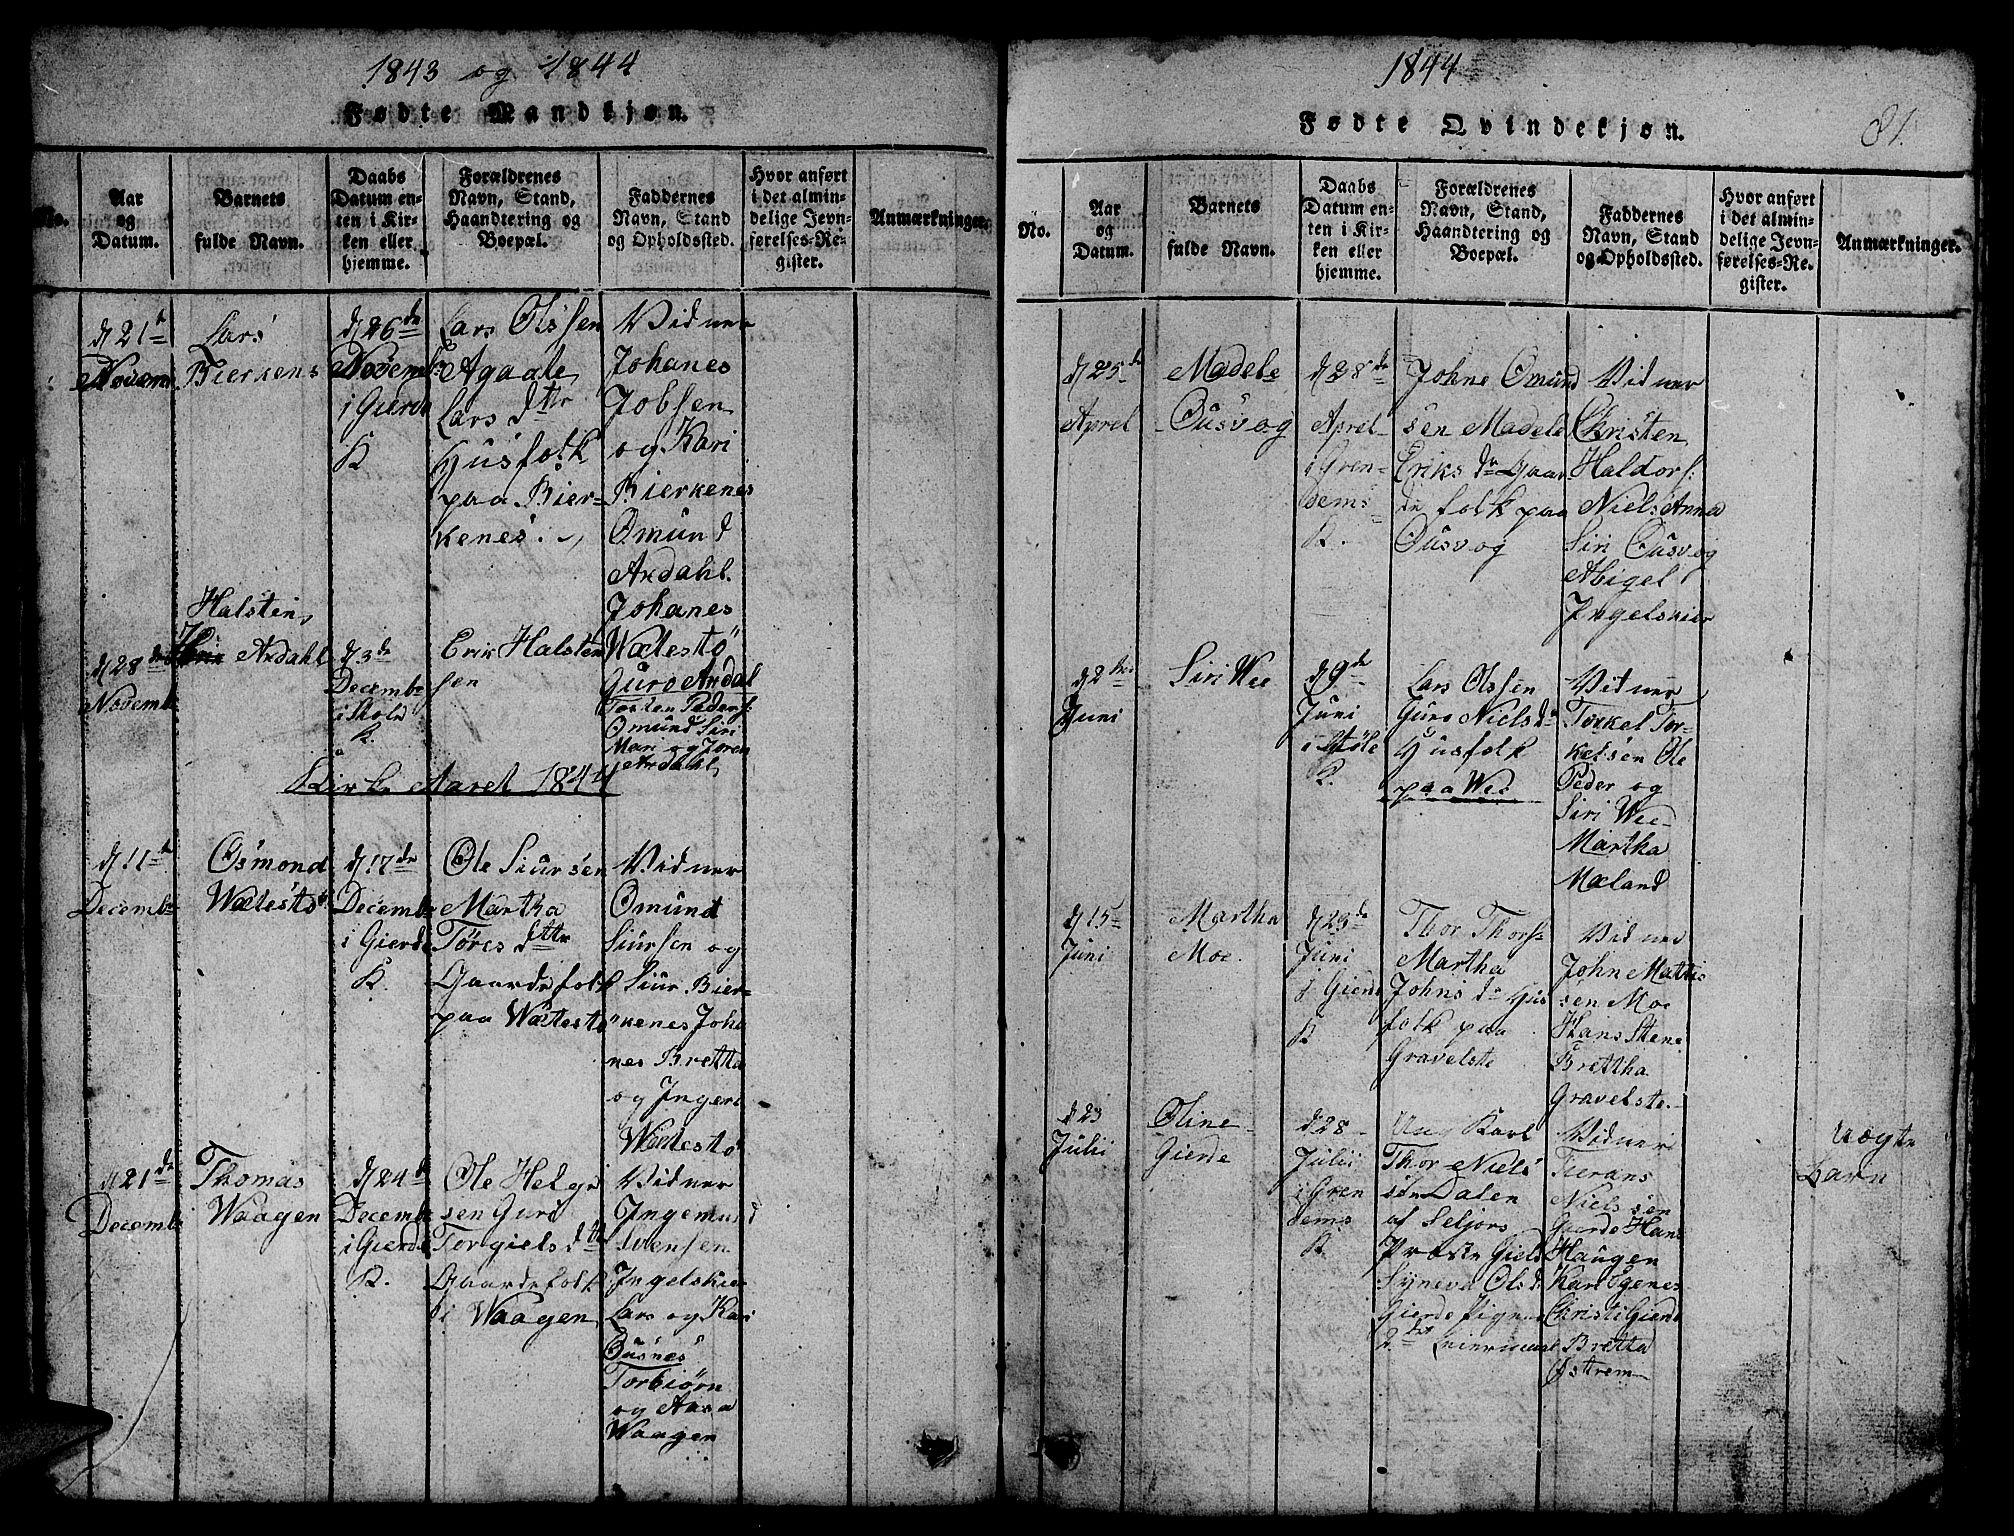 1843 og 1844
Fødte Mandkjøn.
No.
Aar
og
Datum.
Barnets
fulde Navn.
Daabs
Datum en-
ten i Kir-
ken eller
hjemme.
Forældrenes
Navn, Stand,
Haandtering og
Boepæl.
Faddernes
Navn, Stand
og Opholdssted.
Hvor anført
i det almin-
delige Jevn-
førelses-Re-
gister.
Anmærkninger.
d 21de
Novemb
Lars
Bierkenes
d 26de
Novemb
i Gierde
K
Lars Olssen
Agaate
Lars dttr
Husfolk
paa Bier-
kenes.
Vidner
Johanes
Jobsen
og Kari
Bierkenes
Omund
Ardahl.
Johanes
Wætestø
Guro Ardal
Torsten Peders:
Omund Siri
Mari og Joren
Ardahl
d 28de
Novemb
Halsten
Ardahl
d 3de
Decembe
i Støle
K.
Erik Halsten
sen
Kirke Aaret 1844
d 11te
Decemb
Osmond
Wætestø
d 17de
Decemb
i Gierde
K.
Ole Siursen
Martha
Tøres dttr
Gaardefolk
paa Wætestø
Vidner
Omund
Siursen og
Siur Bier-
kenes Joha
nes Bretta
og Ingeri
Wætestø
d 21de
Decemb
Thomas
Waagen
d 24de
Decemb
i Gierde
K.
Ole Helge
sen Guro
Torgiels dttr
Gaardefolk
i Waagen
Vidner
Ingemund
Ivensen
Ingelskier
Lars og Kari
Ousnes
Torbiørn
og Aasa
Waagen
1844
Fødte Qvindekjøn.
81.
No.
Aar
og
Datum.
Barnets
fulde Navn.
Daabs
Datum en-
ten i Kir-
ken eller
hjemme.
Forældrenes
Navn, Stand,
Haandtering og
Boepæl.
Faddernes
Navn, Stand
og Opholdssted.
Hvor anført
i det almin-
delige Jevn-
førelses-Re-
gister.
Anmærkninger.
d 25de
Aprel
Madele
Ousvog
d 28de
Aprel
i Gren-
dems
K.
Johne Omund
sen Madele
Eriks dr Gaar
de folk paa
Ousvog
Vidner
Christen
Haldors:
Niels Anna
Siri Ousvog
Abigel
Ingelskier
d 2den
Juni
Siri Wee
d 9de
Juni
i Støle
K.
Lars Olssen
Guro Niels dr
Husfolk
paa Wee
Vidner
Torkel Tor-
kelsen Ole
Peder og
Siri Wee
Martha
Mæland
d 15de
Juni
Martha
Moe.
d 23de
Juni
i Gierde
K
Thor Thors-
Martha
Johns dr Hus
folk paa
Gravelste
Vidner
John Mattis
sen Moe
Hans Stene
Brettha
Gravelste.
d 23
Julii
Oline
Gierde
d 28
Julii
i Gren
dems
K
Ung Karl
Thor Niels
sen Dalen
af Seljors
Præste Gield
Syneva Ols dr
Gierde Pigen
2det Leiermaal
Vidner
Tierans
Niels sen
Gierde Hans
Haugen
Kari Egenes
Christi Gierde
Bretta
Østrem
Uægte
Barn